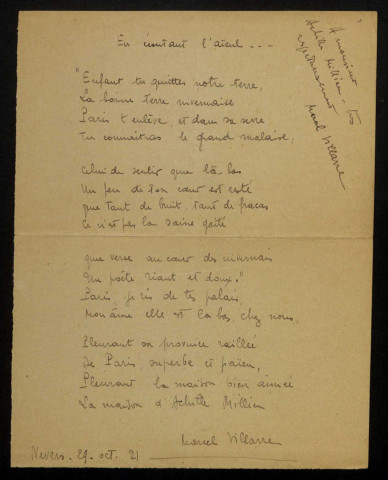 En écoutant l'aïeul ...
A monsieur
Achille Millien - très
respectueusement
Marcel Villarre
"Enfant tu quittes notre terre,
La bonne terre nivernaise
Paris t'enlève, et dans sa serre
Tu connaîtras le grand malaise.
Celui de sentir que là-bas
Un peu de ton cœur est resté
que tant de bruit, tant de fracas
Ce n'est pas la saine gaîté
que verse au cœur des nivernais
Un poète riant et doux."
Paris, je ris de tes palais,
Mon âme elle est là-bas, chez nous,
Pleurant sa province raillée
De Paris superbe et païen,
Pleurant la maison bien aimée
La maison d'Achille Millien
Marcel Villarre
Nevers. 29. oct. 21